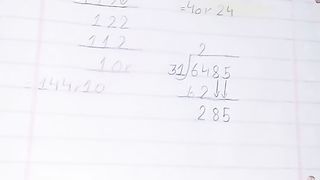 =40r24
122
112
10r
=144r10
2
31)6485
62↓↓
285